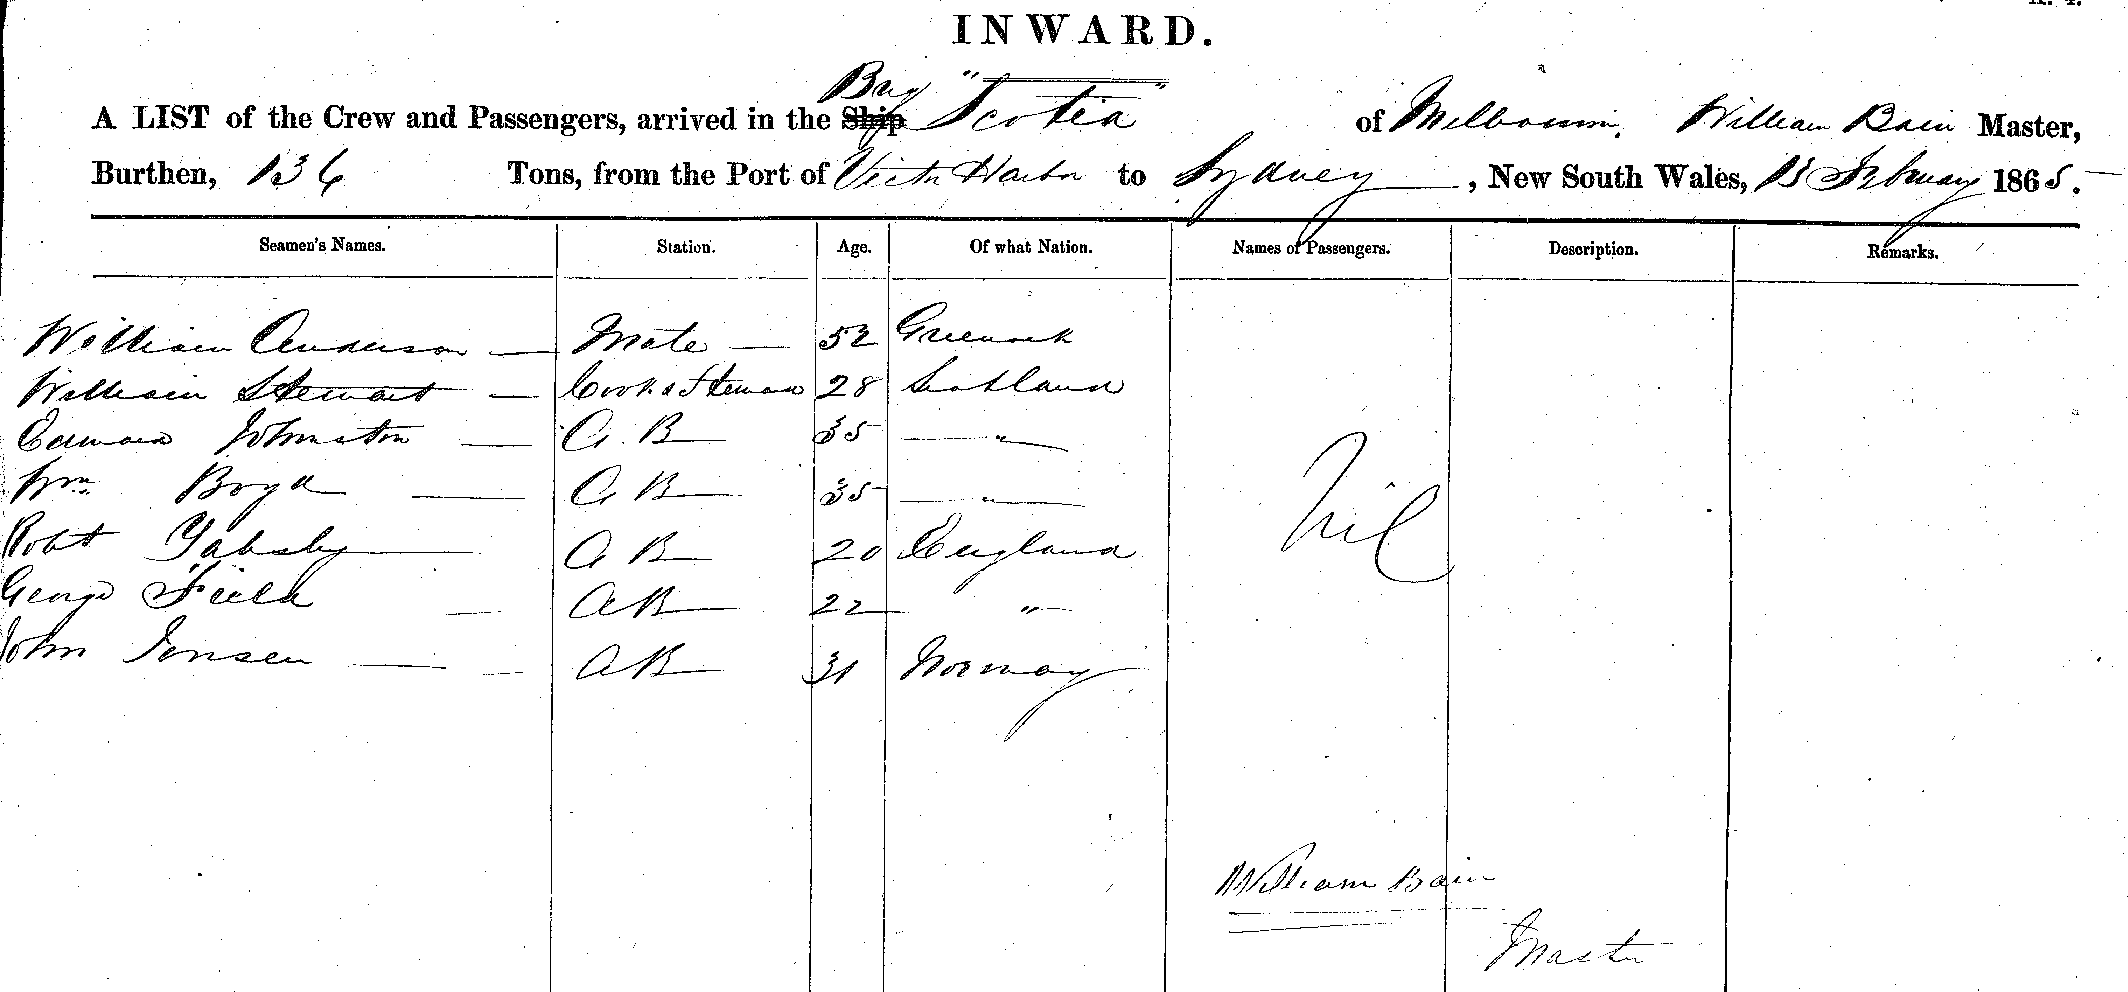 INWARD.
Brig
A LIST of the Crew and Passengers, arrived in the Ship "Scotia" of Melbourne, William Bain Master,
Burthen, 136 Tons, from the Port of Victor Harbor to Sydney, New South Wales, 13 February 1865.
Seamen's Names. Station. Age. Of what Nation. Names of Passengers. Description. Remarks.
William Anderson — Mate — 52 Greenock
William Stewart — Cook & Steward 28 Scotland
Edward Johnston — A. B — 35 — " —
Wm Boyd — A B — 35 — " —
Robt — A B 20 England
George Field — A B — 22 — " —
John Jensen — A B — 31 Norway
Nil
William Bain
Master